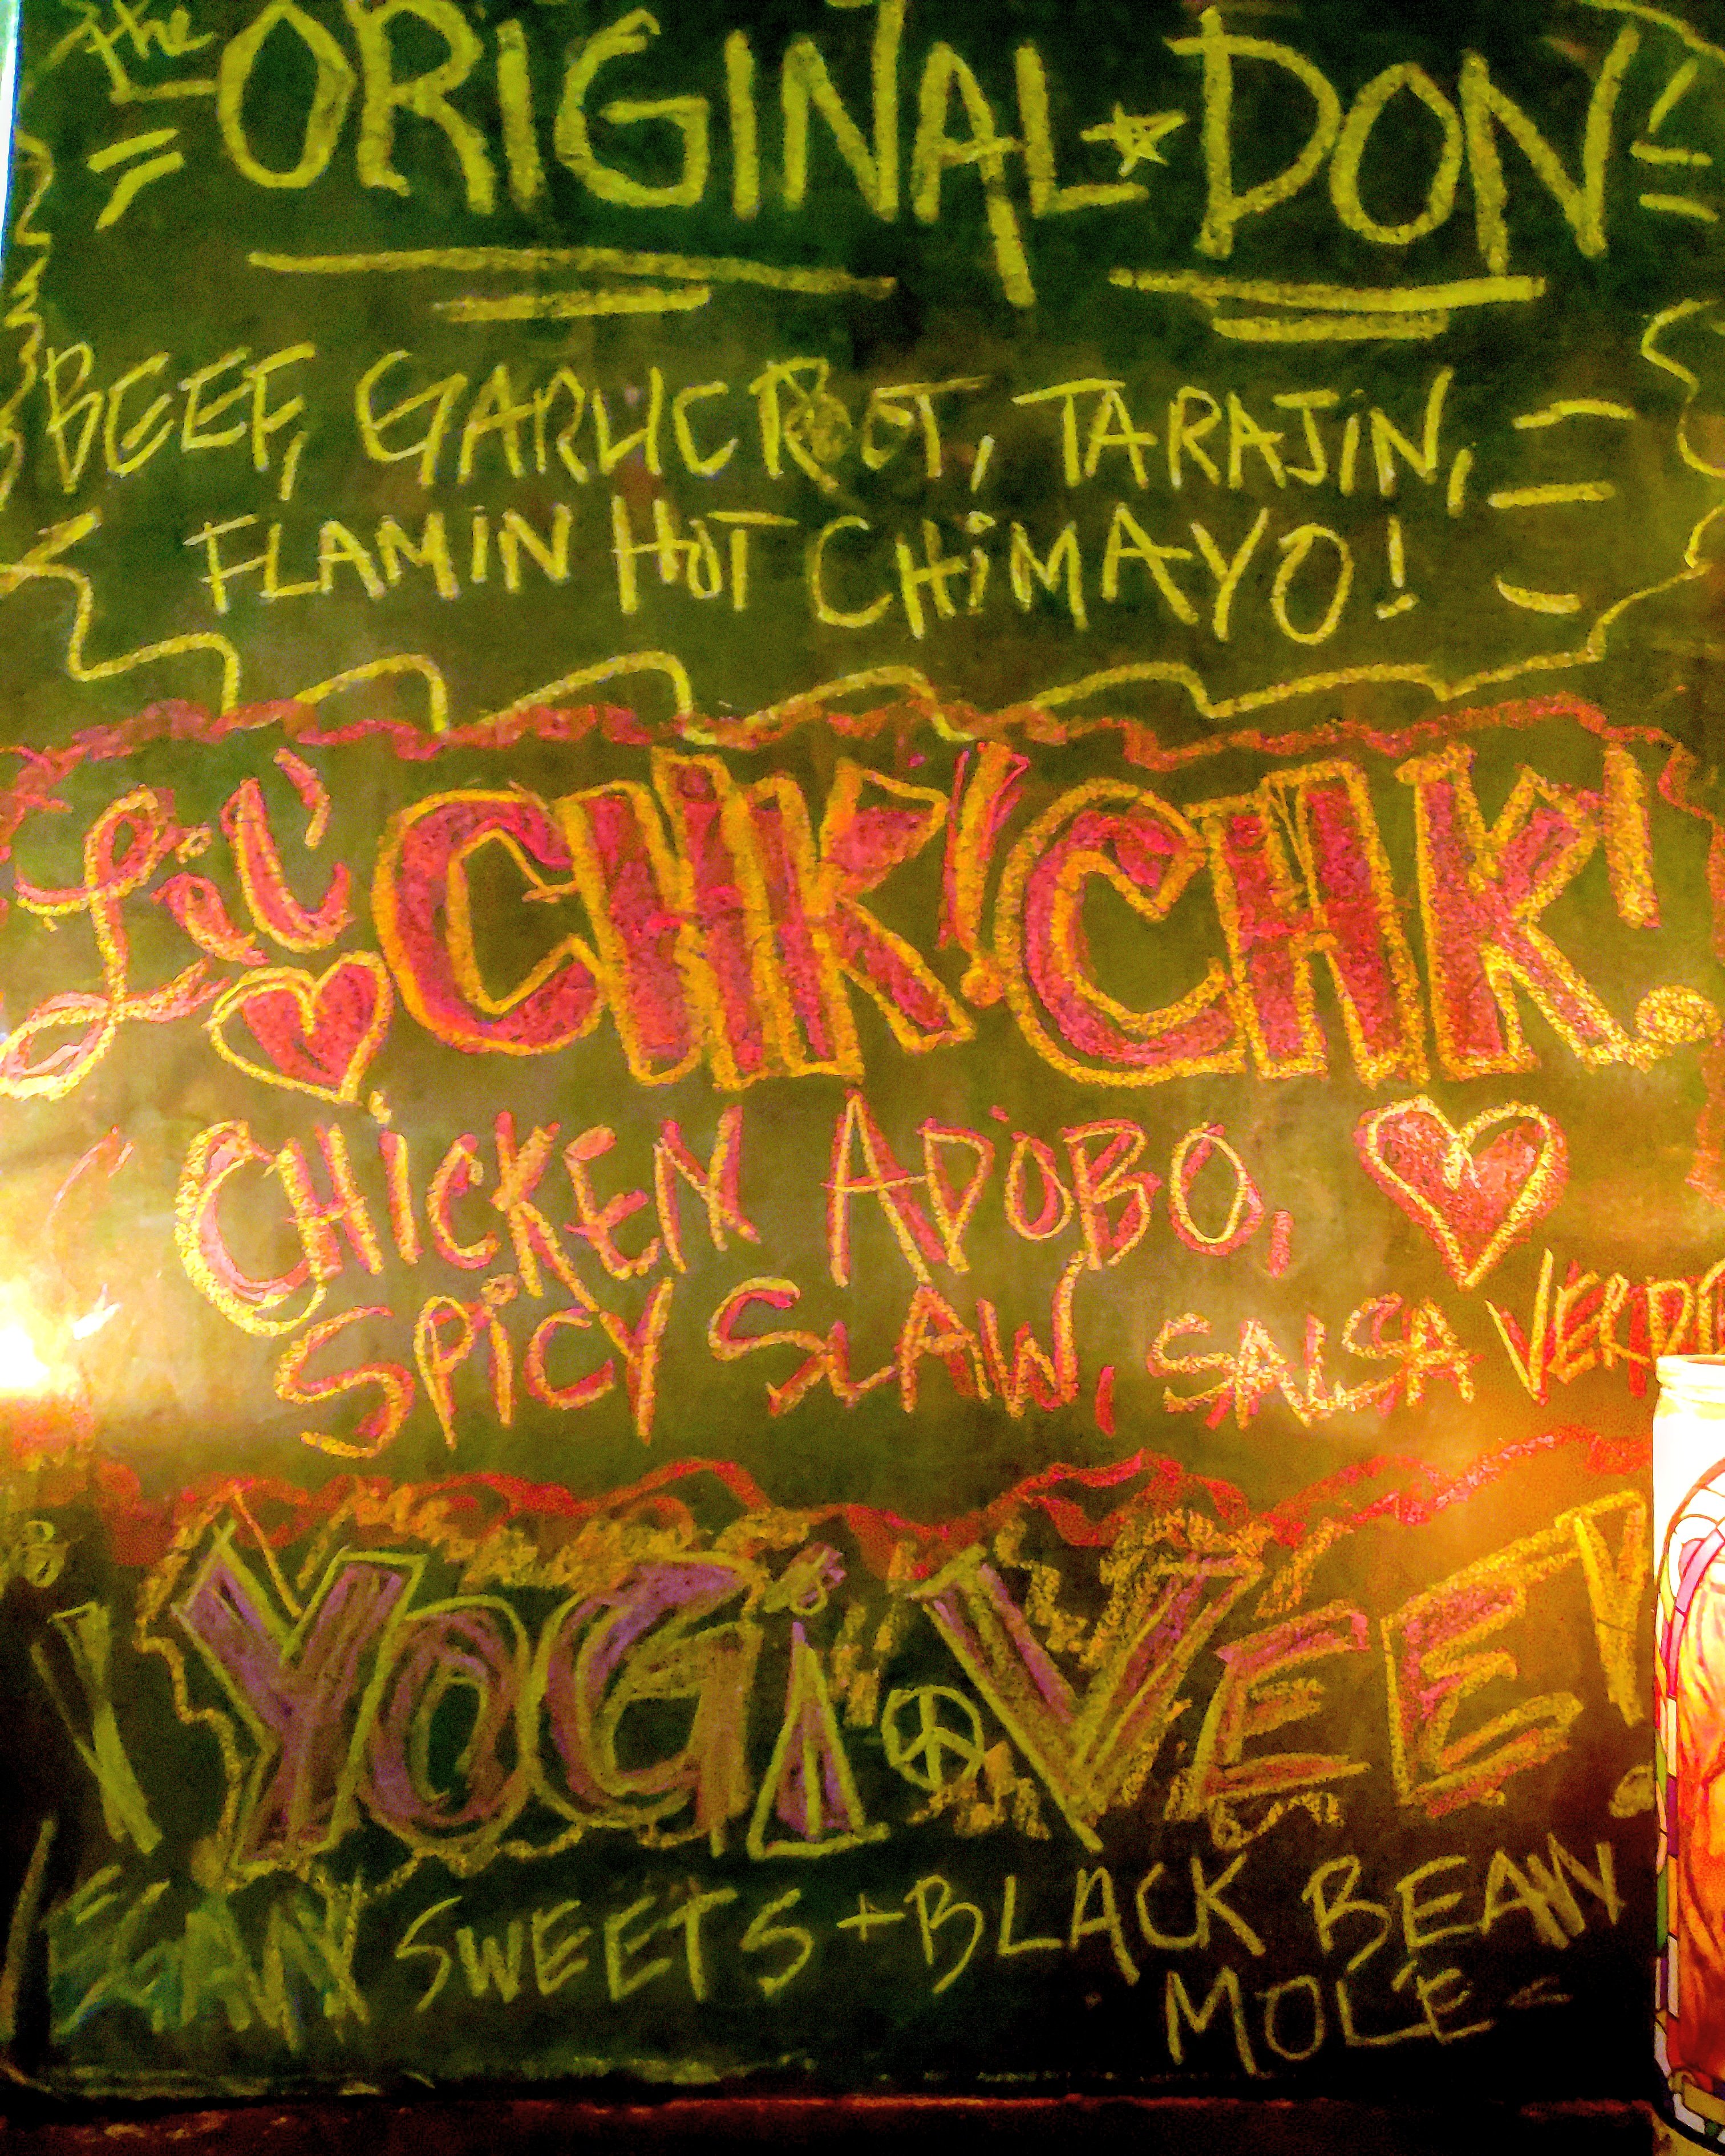 the ORiGiNAL DON
BEEF, GARLIC ROOT, TARAJiN,
FLAMiN HOT CHiMAYO!
Lil' CHK! CHK!
CHiCKEN ADOBO,
SPiCY SLAW, SALSA VERDE
YOGi VEE!
VEGAN SWEETS + BLACK BEAN
MOLE